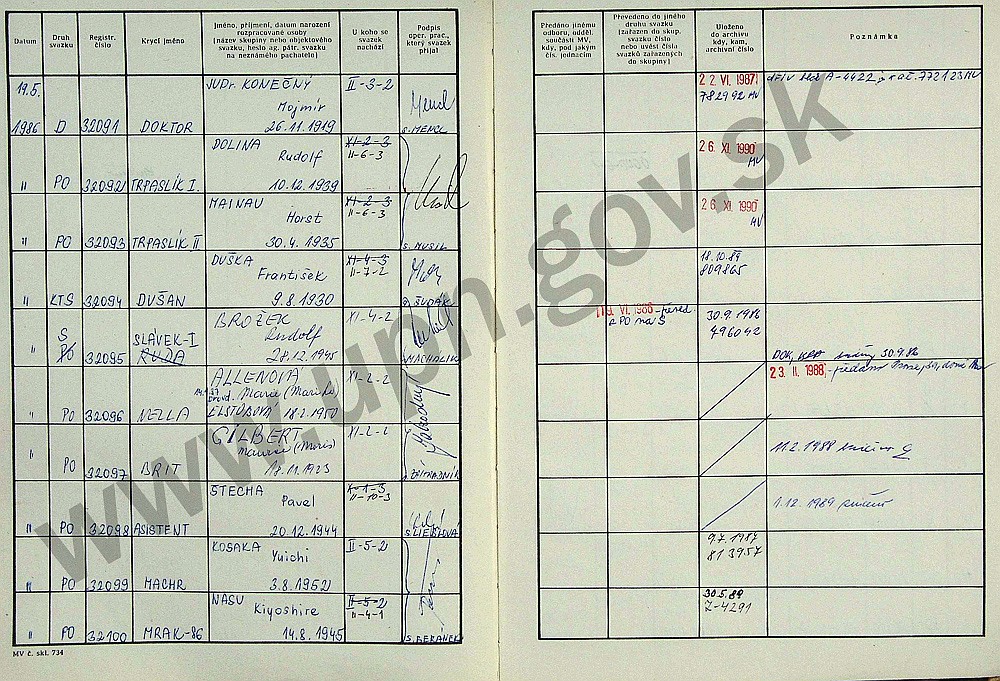 Datum
Druh svazku
Registr. číslo
Krycí jméno
Jméno, příjmení, datum narození
rozpracované osoby
(název skupiny nebo objektového
svazku, heslo ag. pátr. svazku
na neznámého pachatele)
U koho se
svazek
nachází
Podpis
oper. prac.,
který svazek
přijal
Předáno jinému
odboru, odděl.
součásti MV,
kdy, pod jakým
čís. jednacím
Převedeno do jiného
druhu svazku
(zařazen do skup.
svazku číslo
nebo uvést čísla
svazků zařazených
do skupiny)
Uloženo
do archivu
kdy, kam,
archivní číslo
Poznámka
19.5. JUDr. KONEČNÝ II-3-2
Mojmír
1986 D 32091 DOKTOR 26.11.1919 S. MENCL
22. VI. 1987
782992 MV
A-4422
DOLINA XI-2-3
Rudolf II-6-3
" PO 32092 TRPASLÍK I. 10.12.1939
26. XI. 1990
MV
MAINAU XI-2-3
Horst II-6-3
" PO 32093 TRPASLÍK II 30.4.1935 S. MUSIL
26. XI. 1990
MV
DUŠKA XI-4-3
František II-7-2
" KTS 32094 DUŠAN 9.8.1930
18.10.89
809865
BROŽEK XI-4-2
S SLÁVEK-I Rudolf
" PO 32095 RUDA 28.12.1945 MACHALÍK
19. VI. 1986
z PO na S
30.9.1986
496042
30.9.86
ALLENOVÁ XI-2-2
Marie
" PO 32096 NELLA 18.2.1950
23. II. 1988 - předáno
GILBERT XI-2-2
" PO 32097 BRIT 18.11.1923
11.2.1988
ŠTECHA
Pavel II-10-3
" PO 32098 ASISTENT 20.12.1944
1.12.1989 zničení
KOSAKA II-5-2
Yuichi
" PO 32099 MACHR 3.8.1952
9.7.1987
813957
NASU II-5-2
Kiyoshire II-4-1
" PO 32100 MRAK-86 14.8.1945 S. BERANEK
30.5.89
Z-4291
MV č. skl. 734
www.upn.gov.sk